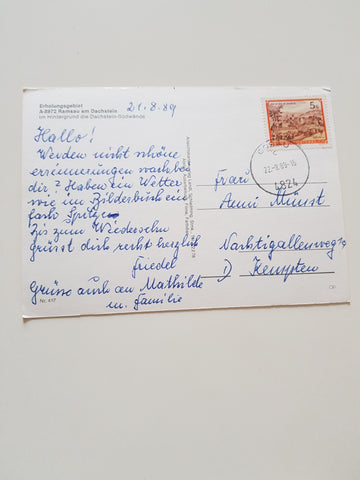 Erholungsgebiet
A-8972 Ramsau am Dachstein
im Hintergrund die Dachstein-Südwände
21.8.89
Hallo!
Werden nicht schöne
erinnerungen wach bei
dir? Haben ein Wetter
wie im Bilderbuch ein
fach Spitze
Bis zum Wiedersehn
grüsst dich recht herzlich
Friedel
Grüsse auch an Mathilde
u. Familie
Nr. 417
5
22.-8.89-16
4824
Frau
Anni Münst
Nachtigallenweg 19
D Kempten